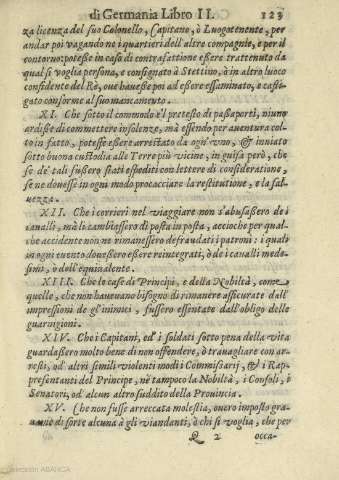 di Germania Libro II. 123
za licenza del suo Colonello, Capitano, ò Luogotenente, per
andar poi vagando ne i quartieri dell'altre compagnie, e per il
contorno: potesse in caso di contrafattione essere trattenuto da
qual si voglia persona, e consignato à Stettino, ò in altro luoco
confidente del Rè, oue hauesse poi ad essere essaminato, e casti-
gato conforme al suo mancamento.
XI. Che sotto il commodo e'l pretesto di passaporti, niuno
ardisse di commettere insolenze, mà essendo per auentura col-
to in fatto, potesse essere arrestato da ogn'vno, & inniato
sotto buona custodia alle Terre più vicine, in guisa però, che
se de' tali fussero stati espediti con lettere di consideratione,
se ne douesse in ogni modo procacciare la restitutione, e la sal-
uezza.
XII. Che i corrieri nel viaggiare non s'abusassero de i
caualli, mà li cambiassero di posta in posta, accioche per qual-
che accidente non ne rimanessero defraudati i patroni: i quali
in ogni euento douessero essere reintegrati, ò de i caualli mede-
simi, ò dell'equiualente.
XIII. Che le case di Principi, e della Nobiltà, come
quelle, che non haueuano bisogno di rimanere assicurate dall'
impressioni de gl'inimici, fussero essentate dall'obligo delle
guarnigioni.
XIV. Che i Capitani, ed' i soldati sotto pena della vita
guardassero molto bene di non offendere, ò trauagliare con ar-
resti, od' altri simili violenti modi i Commissarij, & i Rap-
presentanti del Principe, nè tampoco la Nobiltà, i Consoli, i
Senatori, od' alcun altro suddito della Prouincia.
XV. Che non fusse arreccata molestia, ouero imposto gra-
uame di sorte alcuna à gli viandanti, ò chi si voglia, che per
Q 2 occa-